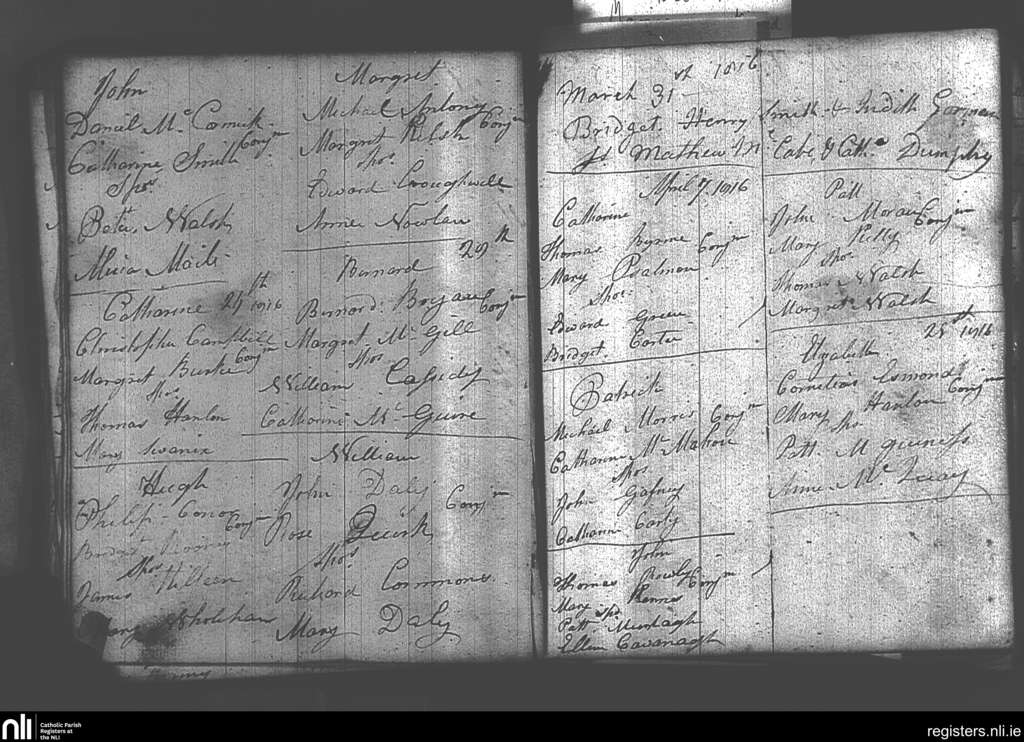 John
Daniel McCormick
Catharine Smith Conjm
Spos
Peter Walsh
Maria Maile
Catharine 24th 1816
Christopher Campbill
Margret Burke Conjm
Spos
Thomas Hanlon
Mary
Hugh
Philip Conor
Bridget Conjm
Spos
James Killeen
Mary
Margret
Michael Antony
Margret Welsh Conjm
Spos
Edward Croughwell
Anne Nowlan
29th
Bernard
Bernard Conjm
Margret McGill
Spos
William Cassidy
Catharine McGuire
William
John Daly
Rose Quirk Conjm
Spos
Richard Commons
Mary Daly
March 31st 1816
Bridget Henry Smith & Judith
Mathew McCabe & Cathe Dumphy
April 7. 1816
Catharine
Thomas Byrne
Mary Psalmon Conjm
Spos
Edward Green
Bridget Carter
Patrick
Michael Morris Conjm
Catharine McMahon
Spos
John Gafney
Catharin Carty
John
Thomas
Mary Conjm
Patt Spos Murtagh
Ellen Cavanagh
Patt
John Moran Conjm
Mary Kelly
Spos
Thomas Walsh
Margret Walsh
25th 1816
Elizabeth
Cornelius Esmond
Mary Hanlon Conjm
Spos
Patt McGuiness
Anne Mc
nli
Catholic Parish
Registers at
the NLI
registers.nli.ie